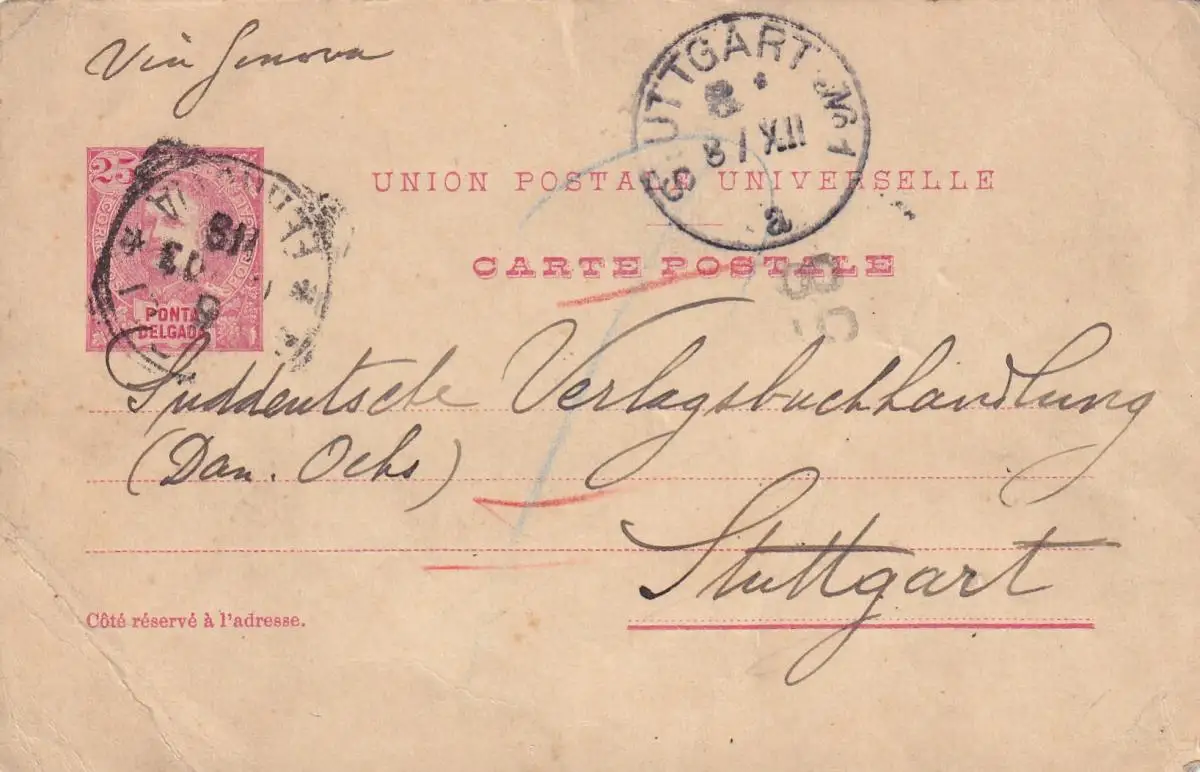 Via Genova
25
PONTA
DELGADA
STUTTGART No 1
8
8/XII
a
UNION POSTALE UNIVERSELLE
CARTE POSTALE
Süddeutsche Verlagsbuchhandlung
(Dan. Ochs)
Stuttgart
Côté réservé à l'adresse.